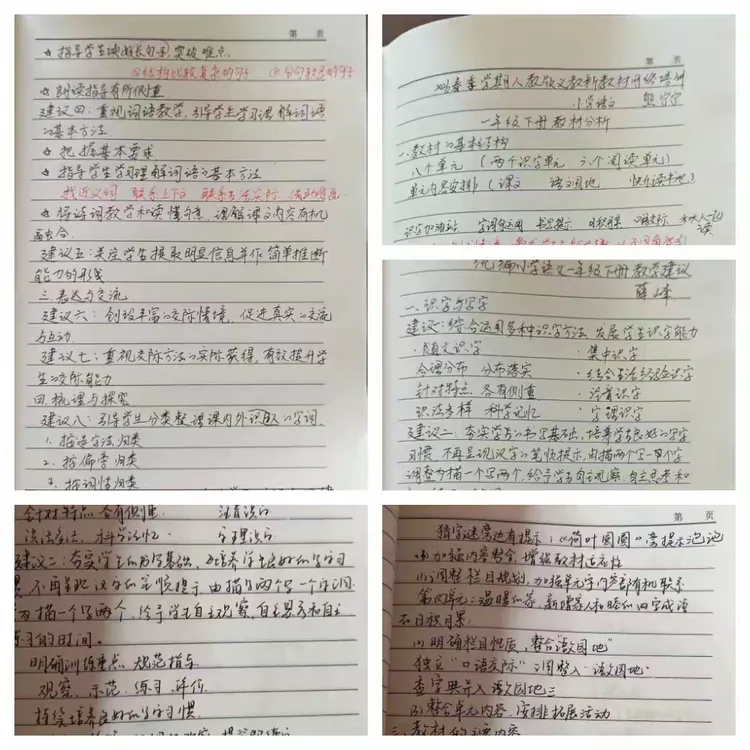 第 页
☆ 指导学生读好长句子,突破难点。
①结构比较复杂的句子 ②分句较多的句子
☆ 朗读指导有所侧重
建议四:重视词语教学,引导学生学习理解词语
的基本方法
☆ 把握基本要求
☆ 指导学生学习理解词语的基本方法
找近义词 联系上下文 联系生活实际
☆ 将词语教学和读懂句意、理解课文内容有机
融合。
建议五:关注学生提取明显信息并作简单推断
能力的形成
三.表达与交流
建议六:创设丰富的交际情境,促进真实的交流
与互动
建议七:重视交际方法的实际获得,有效提升学
生的交际能力
四.梳理与探究
建议八:引导学生分类整理课内外识的字词
1.按造字法归类
2.按偏旁归类
3.按词性归类
第 页
春季学期人教版义教新教材网络培训
小学语文 熊宁宁
一年级下册教材分析
一.教材的基本结构
八个单元(两个识字单元 六个阅读单元)
单元内容安排(课文 语文园地 快乐读书吧)
识字加油站 字词句运用 书写提示 日积月累 和大人一起
读
统编小学语文一年级下册教学建议
薛峰
一.识字与写字
建议一:综合运用多种识字方法 发展学生识字能力
·随文识字 ·集中识字
合理分布 分布落实 ·结合生活经验识字
针对特点 各有侧重 ·注音识字
识法多样 科学记忆 ·字理识字
建议二:夯实学生的书写基础,培养学生良好的写字
习惯.不再呈现汉字的笔顺提示,由描两个写一个字
调整为描一个写两个,给予学生自主观察.自主思考和
针对特点 各有侧重 注音识字
识法多样 科学记忆 字理识字
建议二:夯实学生的书写基础,培养学生良好的写字习
惯.不再呈现汉字的笔顺提示,由描两个写一个调
为描一个写两个,给予学生自主观察,自主思考和自主
练习的时间。
明确训练重点 规范指导
观察、示范、练习、评价
持续培养良好的写字习惯.
第 页
猜字谜旁边有提示;《荷叶圆圆》旁提示泡泡
加强内容整合,增强教材适应性
(1)调整栏目规划,加强单元内容部有机联系
第四单元:温暖的家,新增家人和睦的四字成语
在日积月累
(2)明确栏目性质,整合"语文园地"
独立"口语交际"调整入"语文园地"
查字典并入语文园地三
(3)整合单元内容,安排拓展活动
三.教材的主要内容